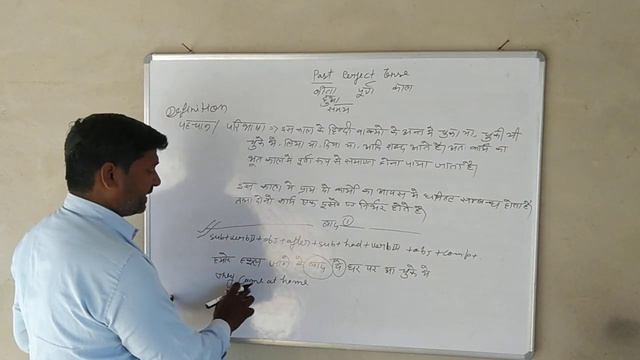 Past Perfect Tense
बीता पूर्ण काल
हुआ
समय
Definition
पहचान / परिभाषा => इस काल के हिन्दी वाक्यों के अन्त में चुका था, चुकी थी
चुके थे, लिया था, दिया था, आदि शब्द आते हैं। अतः कार्य का
भूतकाल में पूर्ण रूप से समाप्त होना पाया जाता है।
इस काल में प्रायः दो कार्यों का आपस में घनिष्ट सम्बन्ध होता है।
तथा दोनों कार्य एक दूसरे पर निर्भर होते हैं।
बाद ①
sub+verbII+obj+after+sub+had+verbIII+obj+comp+
हमारे स्कूल जाने के बाद वे घर पर आ चुके थे
They came at home